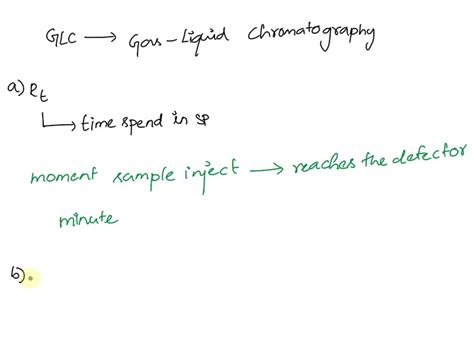 GLC → Gas-Liquid Chromatography
a) Rt
↳ time spend in SP
moment sample inject → reaches the detector
minute
b)